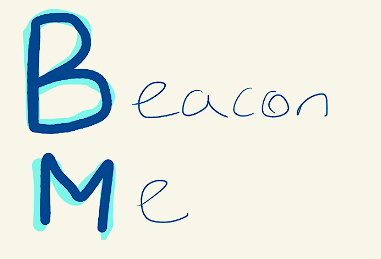 Beacon
Me